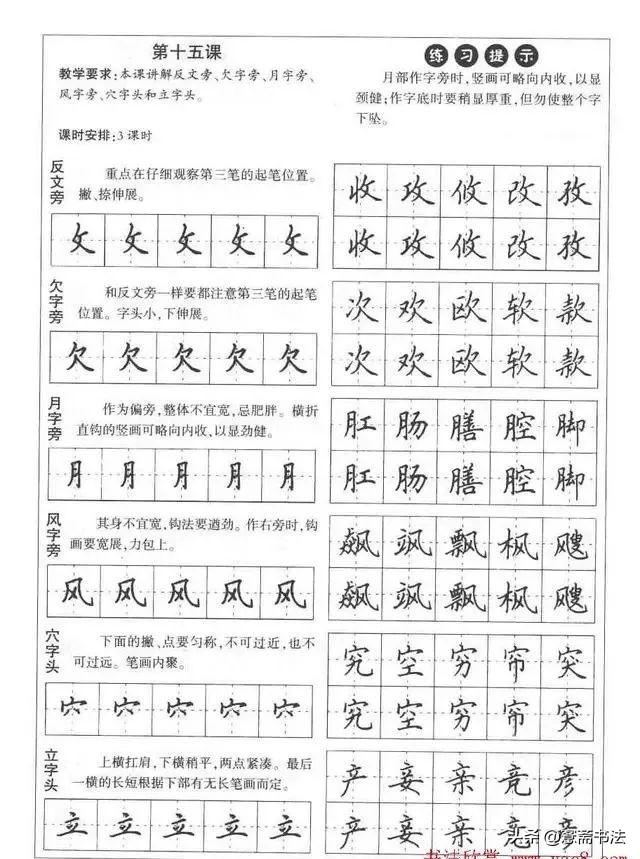 第十五课
教学要求:本课讲解反文旁、欠字旁、月字旁、
风字旁、穴字头和立字头。
课时安排:3课时
练习提示
月部作字旁时,竖画可略向内收,以显
颈健;作字底时要稍显厚重,但勿使整个字
下坠。
反文旁
重点在仔细观察第三笔的起笔位置。
撇、捺伸展。
攵攵攵攵攵
收攻攸改孜
收攻攸改孜
欠字旁
和反文旁一样要都注意第三笔的起笔
位置。字头小,下伸展。
欠欠欠欠欠
次欢欧软款
次欢欧软款
月字旁
作为偏旁,整体不宜宽,忌肥胖。横折
直钩的竖画可略向内收,以显劲健。
月月月月月
肛肠膳腔脚
肛肠膳腔脚
风字旁
其身不宜宽,钩法要遒劲。作右旁时,钩
画要宽展,力包上。
风风风风风
飙飒飘枫飕
飙飒飘枫飕
穴字头
下面的撇、点要匀称,不可过近,也不
可过远。笔画内聚。
穴穴穴穴穴
究空穷帘突
究空穷帘突
立字头
上横扛肩,下横稍平,两点紧凑。最后
一横的长短根据下部有无长笔画而定。
立立立立立
产妾亲竞彦
产妾亲
头条
斋书法
书法欣赏